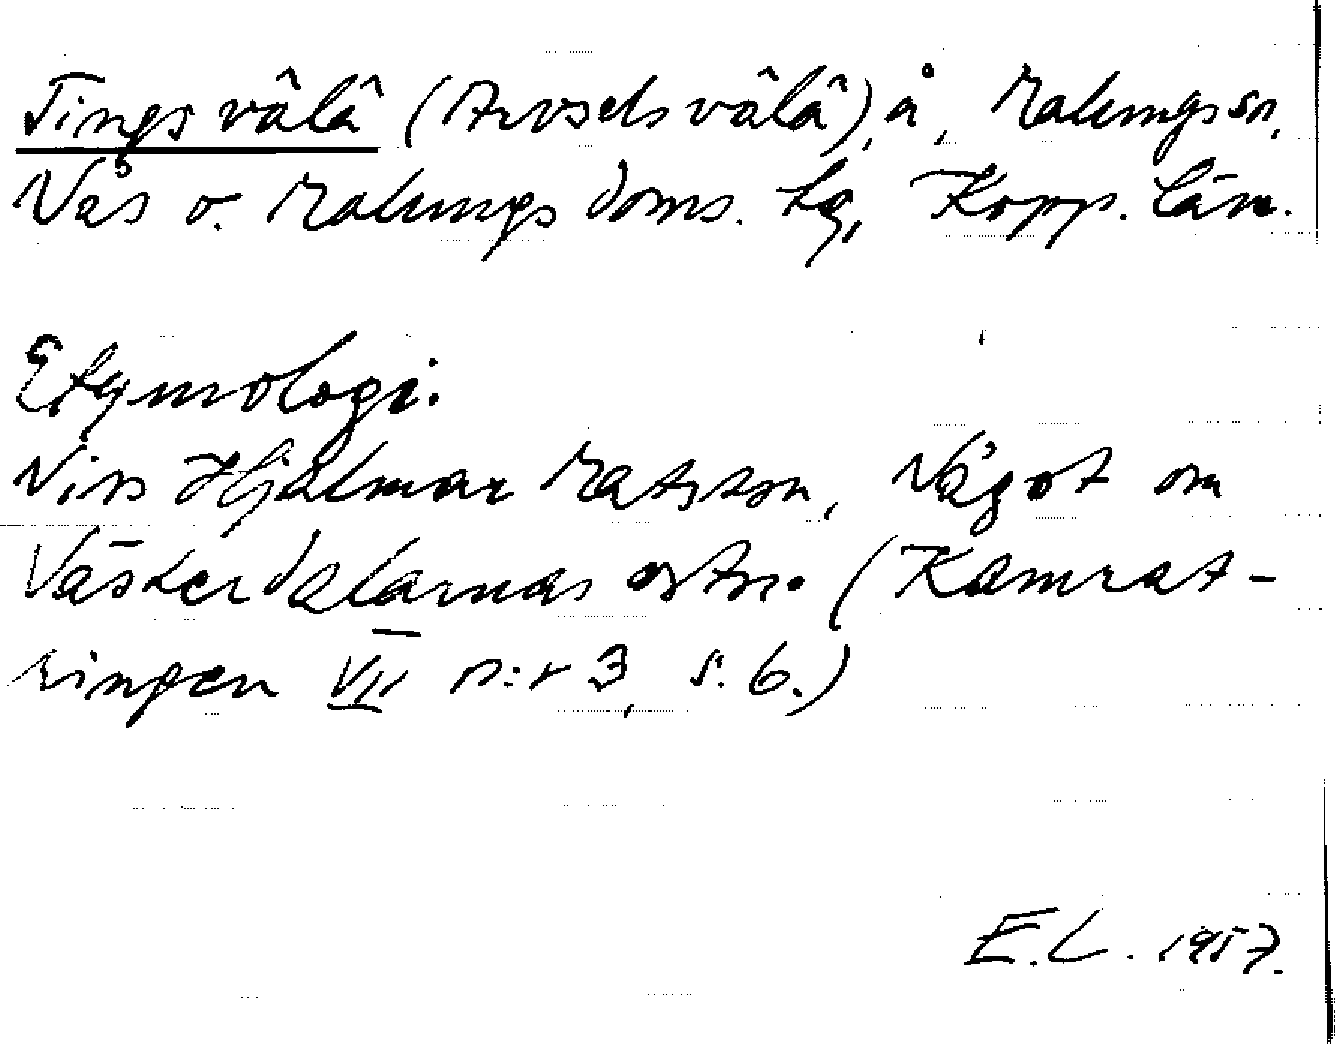 Tingsvâlâ (Arvselsvâlâ), å, Malungs sn,
Nås o. Malungs doms. tg, Kopp. län.
Etymologi.
Nils Hjalmar Matsson, Något om
Västerdalarnas ortn. (Kamrat-
ringen VII n:r 3, s. 6.)
E.L. 1957.